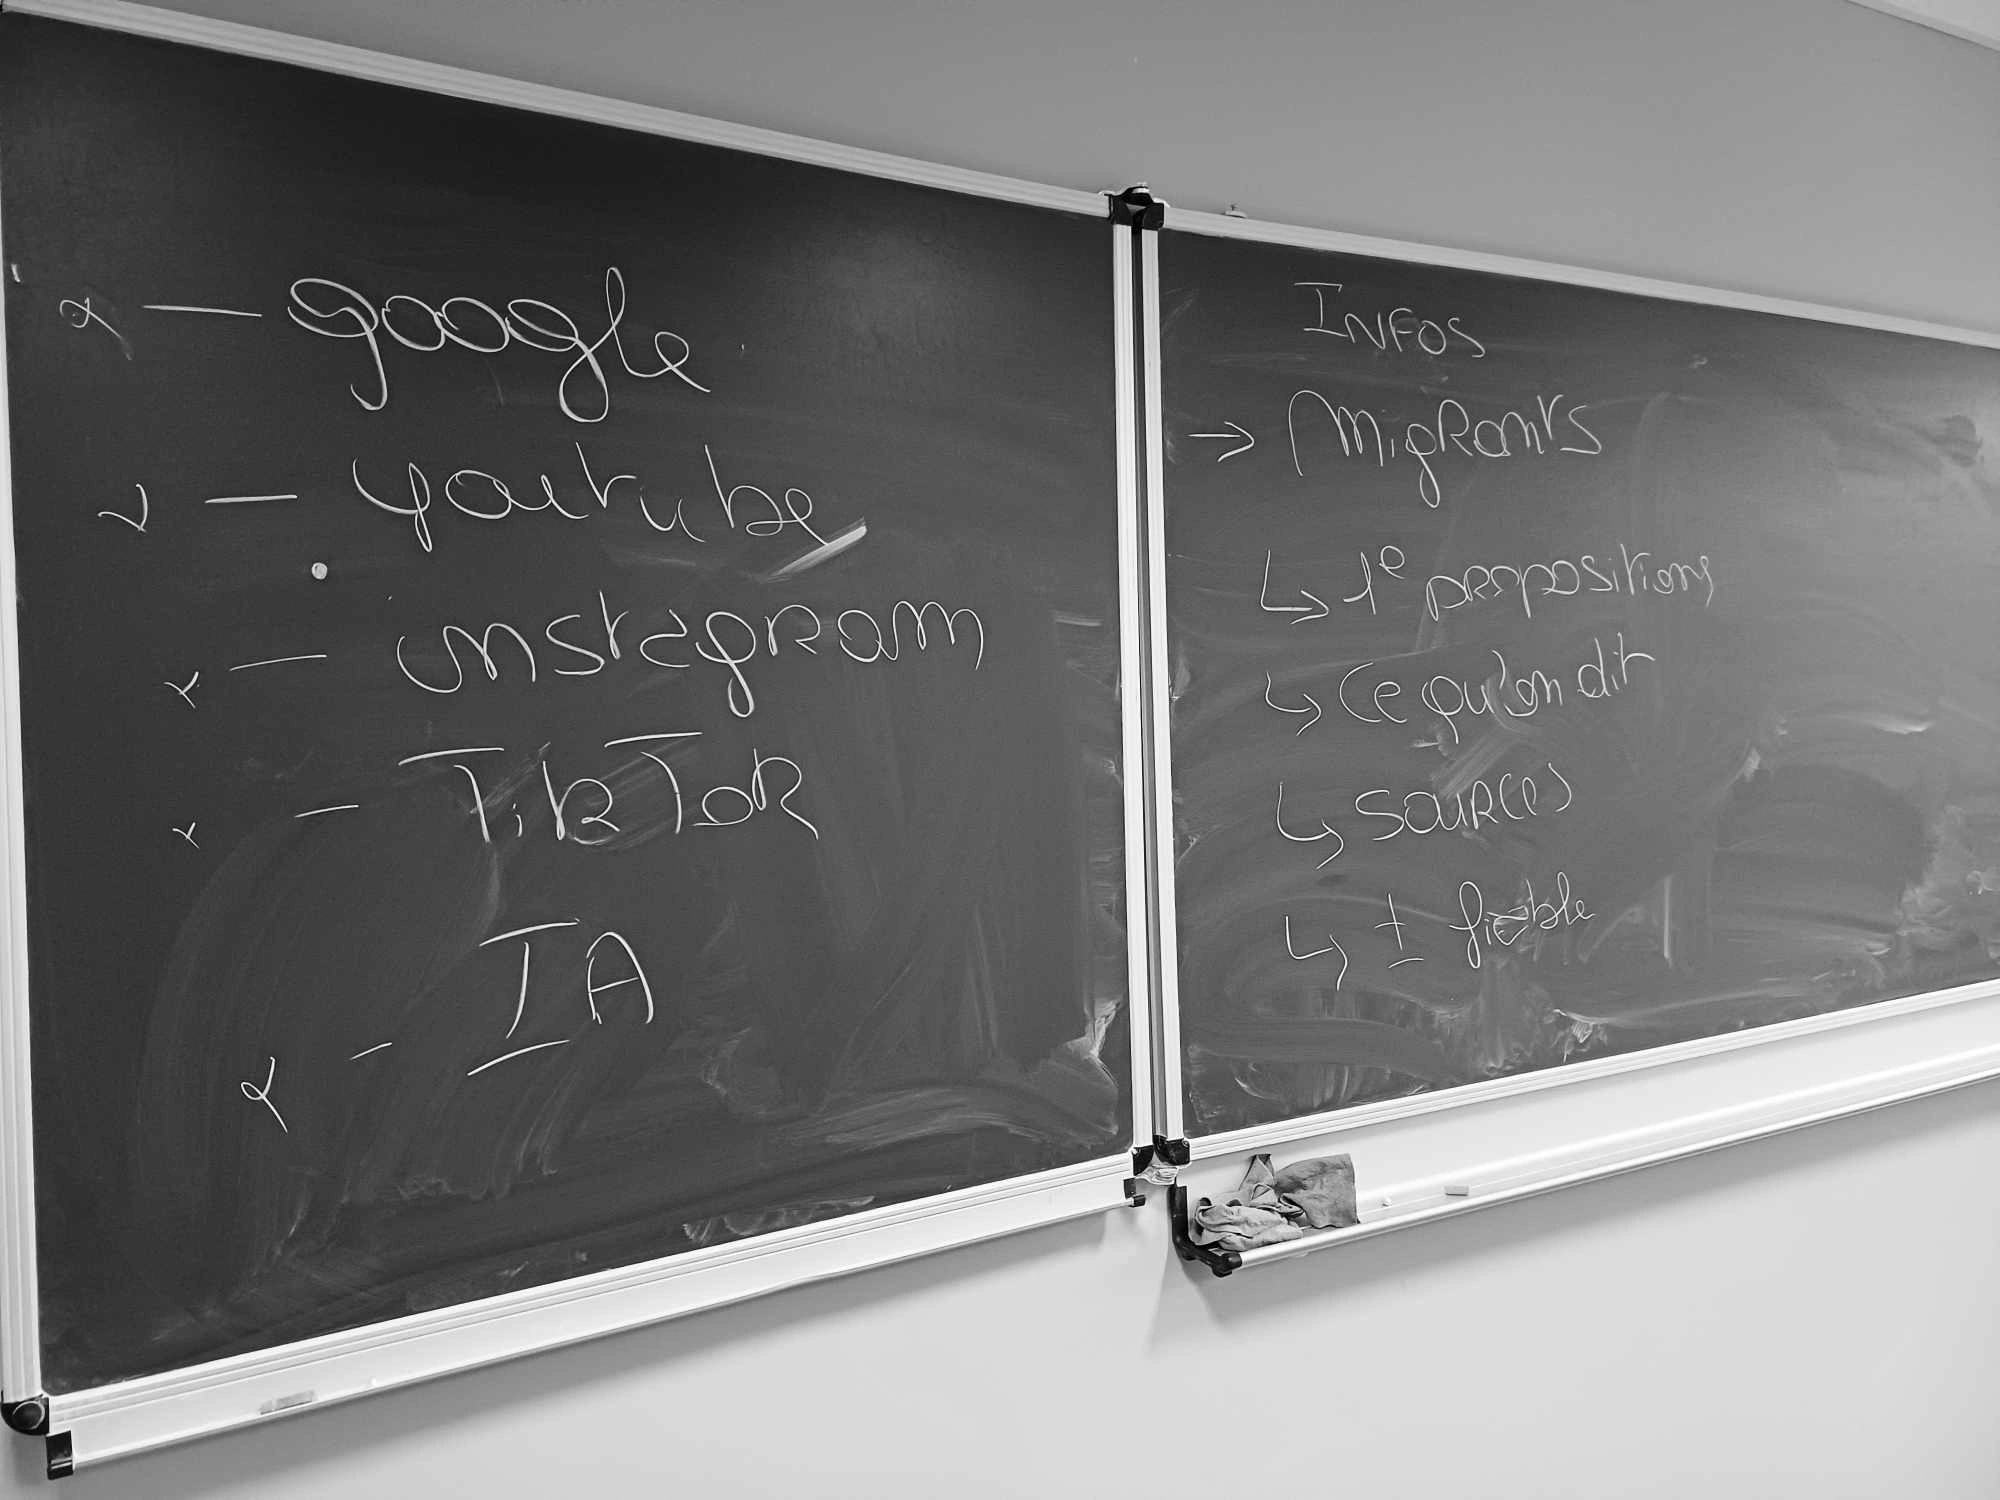 - google
- youtube
- instagram
- TikTok
- IA
INFOS
→ Migrants
↳ 1e propositions
↳ Ce qu'on dit
↳ sources
↳ ± fiable